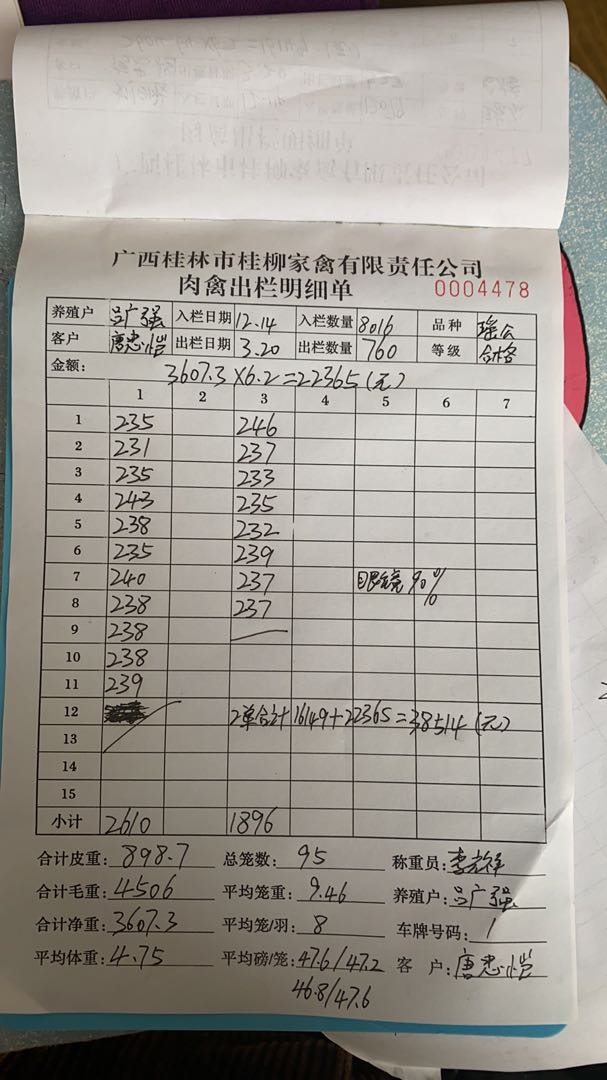 广西桂林市桂柳家禽有限责任公司
肉禽出栏明细单 0004478
养殖户 吕广强 入栏日期 12.14 入栏数量 8016 品种 瑶公
客户 唐忠恺 出栏日期 3.20 出栏数量 760 等级 合格
金额: 3607.3×6.2=22365(元)
1 2 3 4 5 6 7
1 235 246
2 231 237
3 235 233
4 243 235
5 238 232
6 235 239
7 240 237 眼亮90%
8 238 237
9 238
10 238
11 239
12 2单合计16149+22365=38514(元)
13
14
15
小计 2610 1896
合计皮重: 898.7 总笼数: 95 称重员:
合计毛重: 4506 平均笼重: 9.46 养殖户: 吕广强
合计净重: 3607.3 平均笼/羽: 8 车牌号码: /
平均体重: 4.75 平均磅/笼: 47.6/47.2 客户: 唐忠恺
46.8/47.6